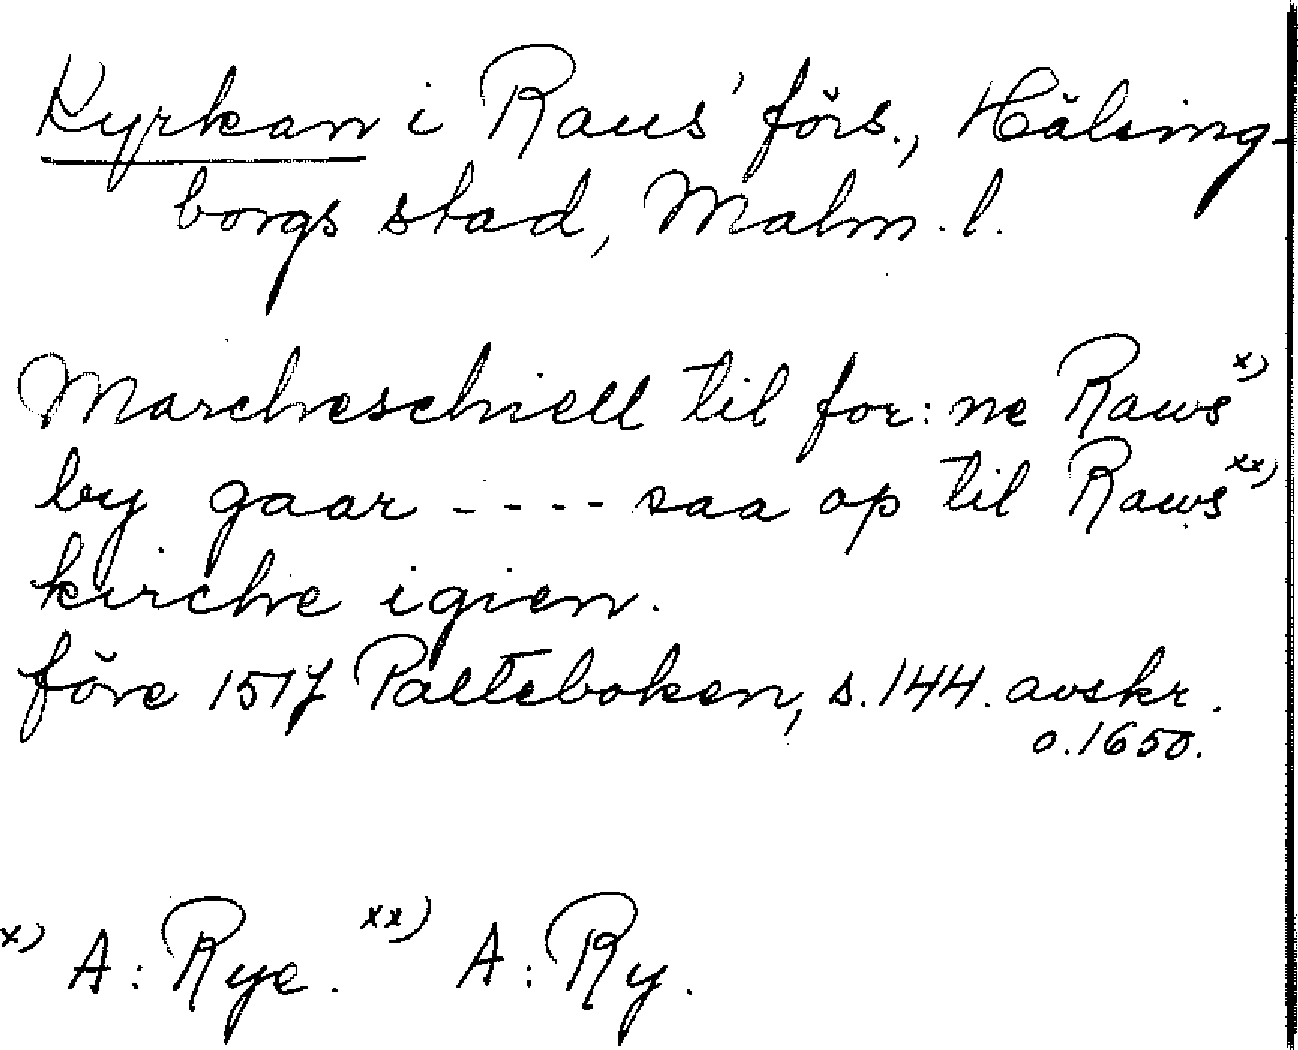 Kyrkan i Raus' förs., Hälsing-
borgs stad, Malm. l.
Marcheschiell til for: ne Raws x)
by gaar ---- saa op til Raws xx)
kirche igien.
före 1517 Palteboken, s. 144. avskr.
o. 1650.
x) A: Rye. xx) A: Ry.